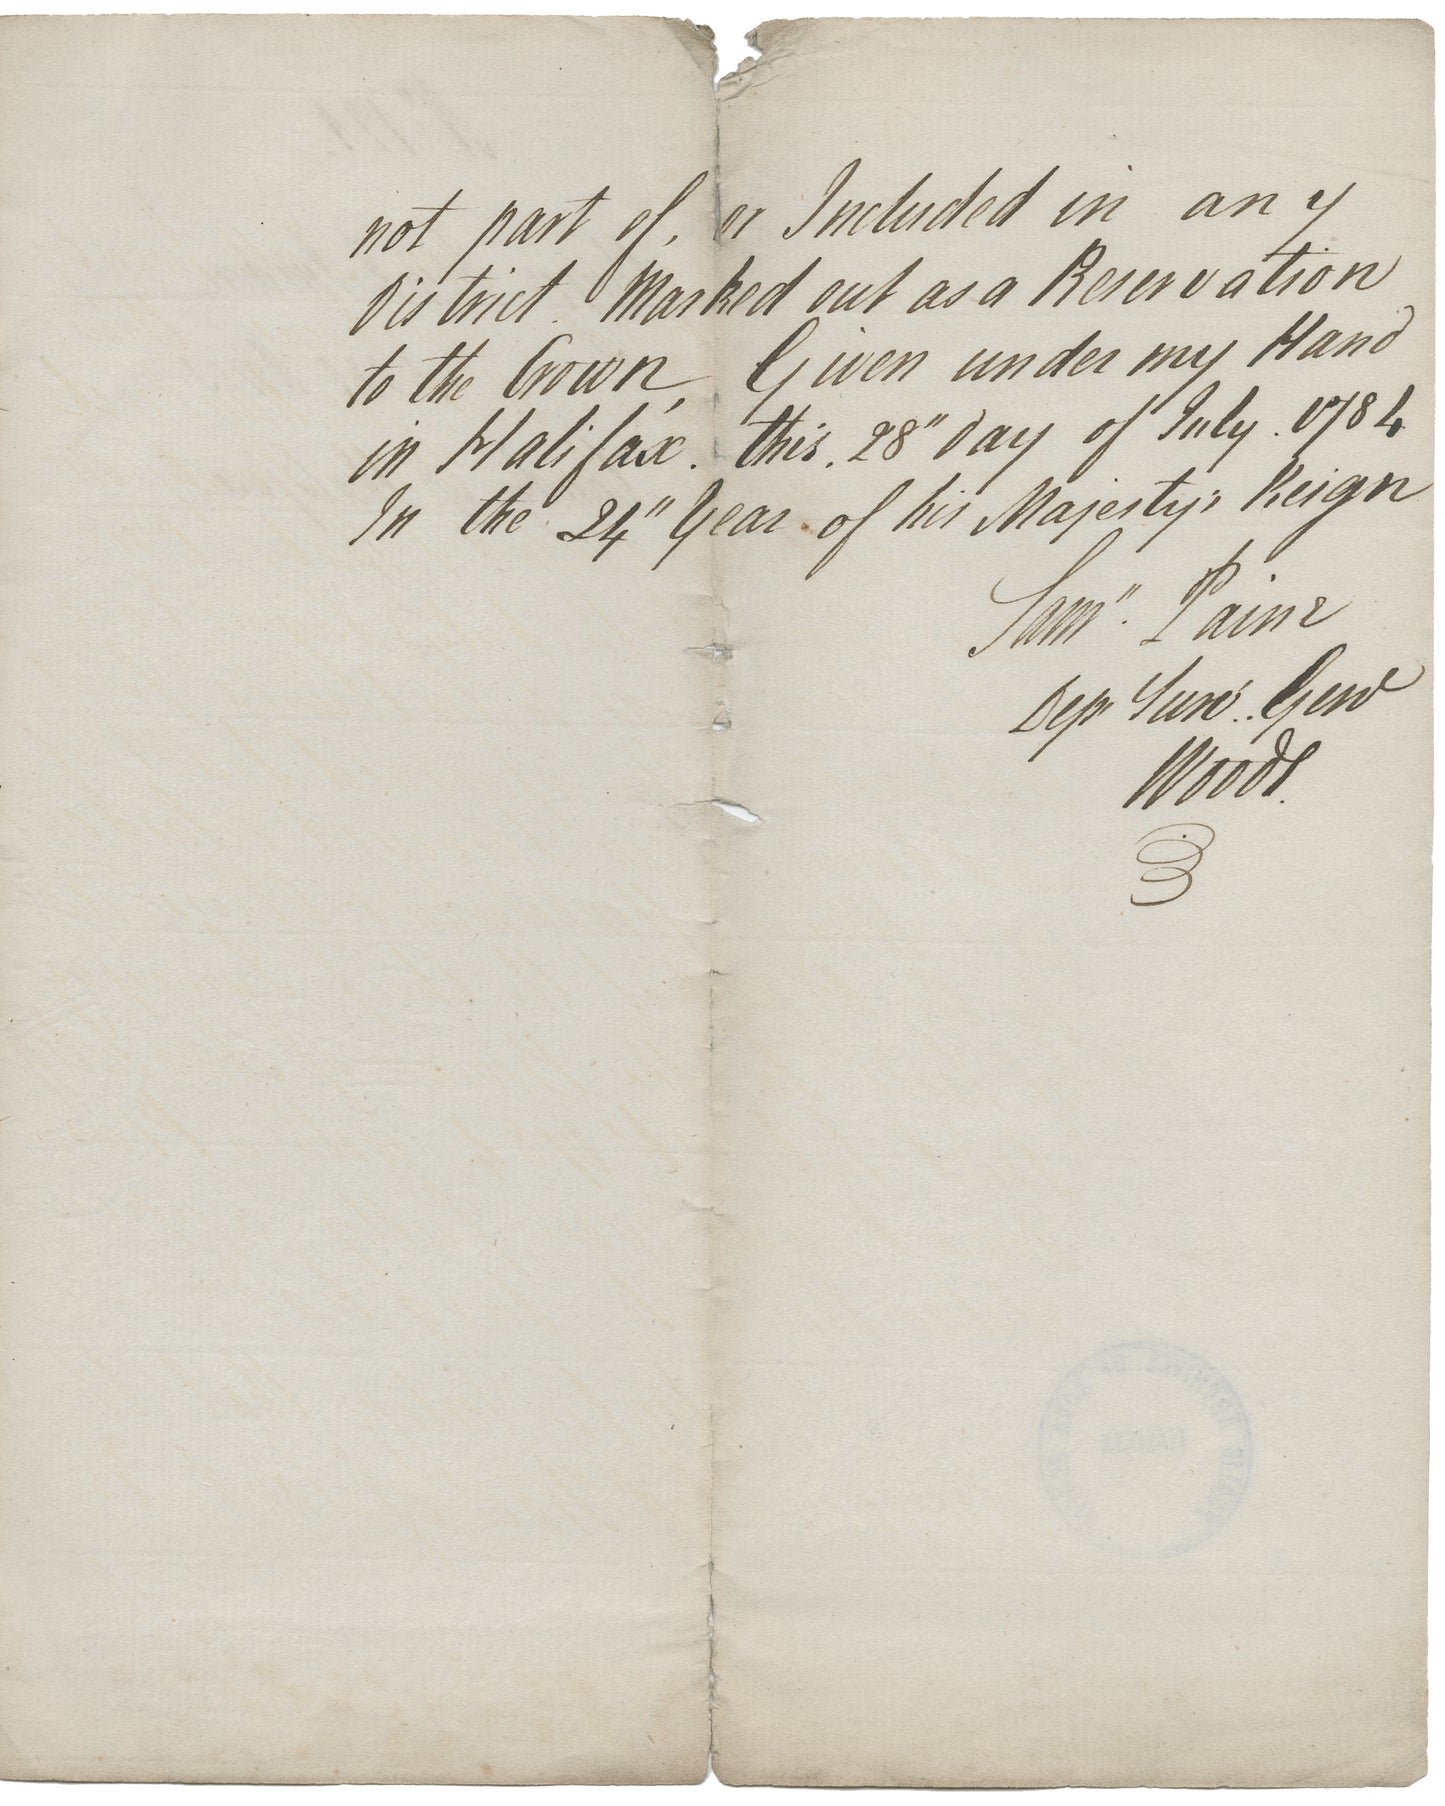 not part of, or Included in any
District. Marked out as a Reservation
to the Crown, Given under my Hand
in Halifax. this. 28" day of July. 1784
In the 24" Year of his Majesty's Reign
Sam". Paine
Dep Surv.. Genl
Woods.